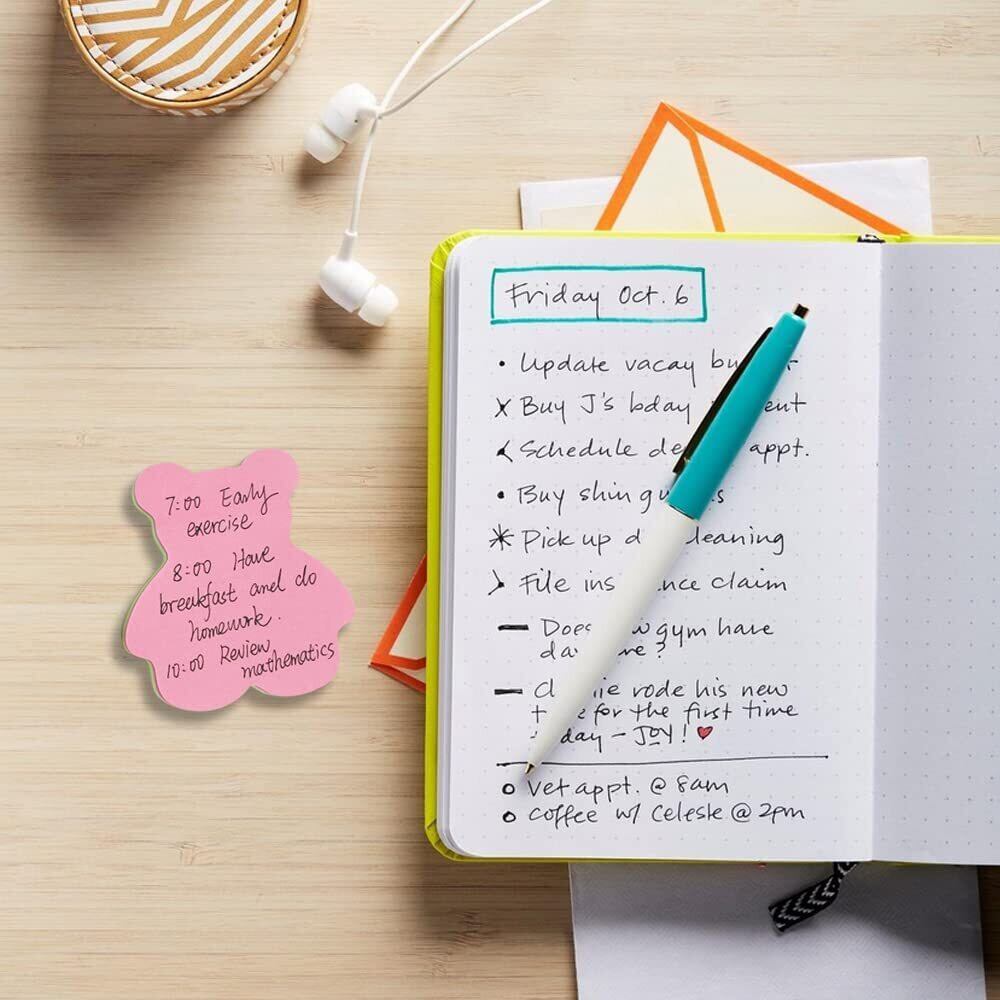 7:00 Early
exercise
8:00 Have
breakfast and do
homework.
10:00 Review
mathematics
Friday Oct. 6
Update vacay
Buy J's bday
Schedule appt.
Buy shin
Pick up
File claim
gym have
?
rode his new
for the first time
- JOY!
Vet appt. @ 8am
coffee w/ Celeste @ 2pm